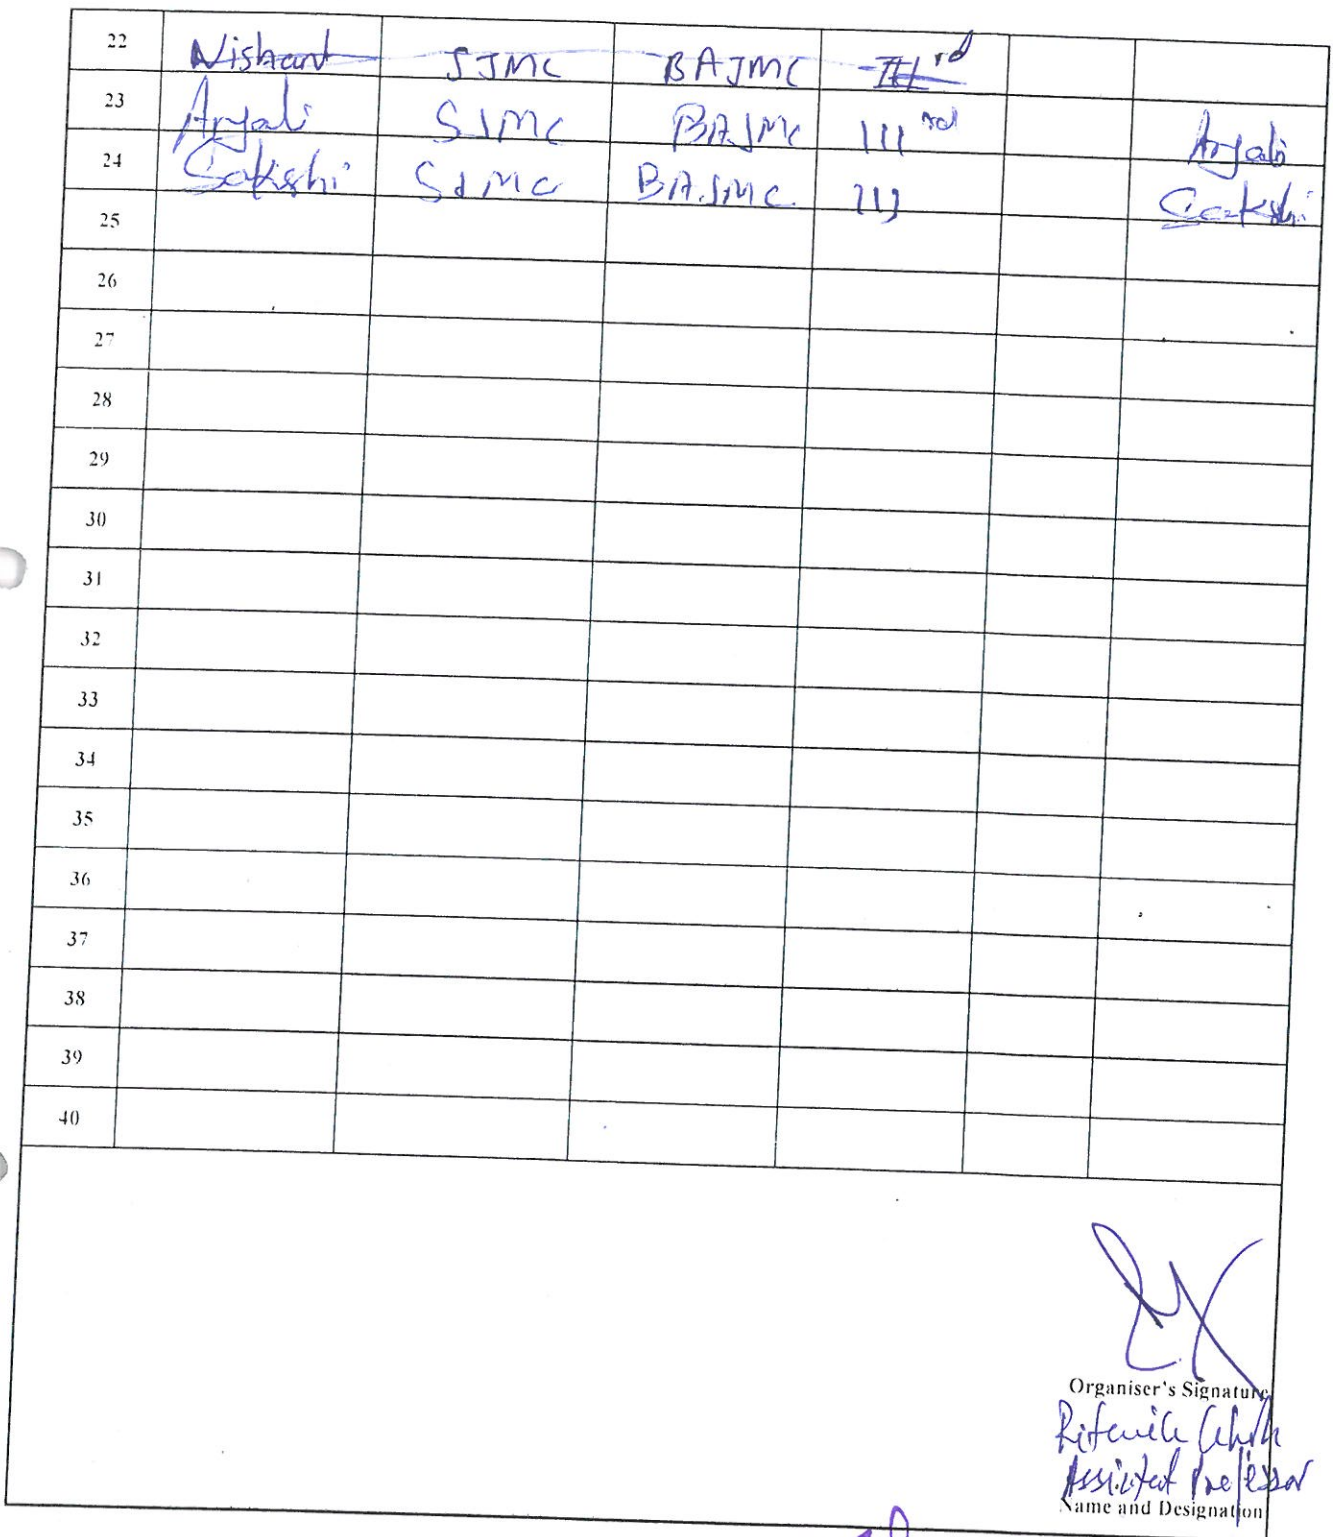 22 Nishant SJMC BAJMC III rd
23 Anjali SJMC BAJMC III rd Anjali
24 Sakshi SJMC BAJMC III Sakshi
25
26
27
28
29
30
31
32
33
34
35
36
37
38
39
40
Organiser's Signature
Assistat Professor
Name and Designation